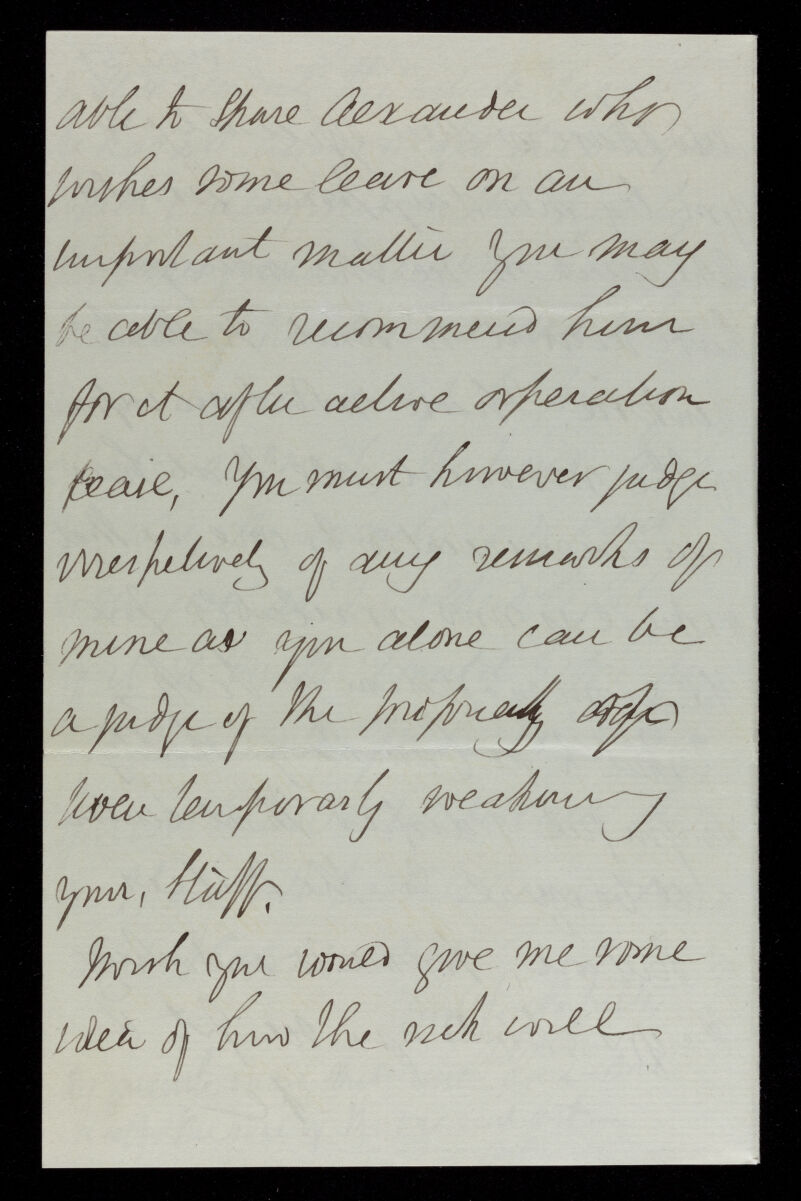 able to spare Alexander who
wishes some leave on an
important matter you may
be able to recommend him
for it after active operation
cease, You must however judge
irrespectively of any remarks of
mine as you alone can be
a judge of the propriety of
even temporarly weakening
your, Staff.
I wish you would give me some
idea of how the sick will